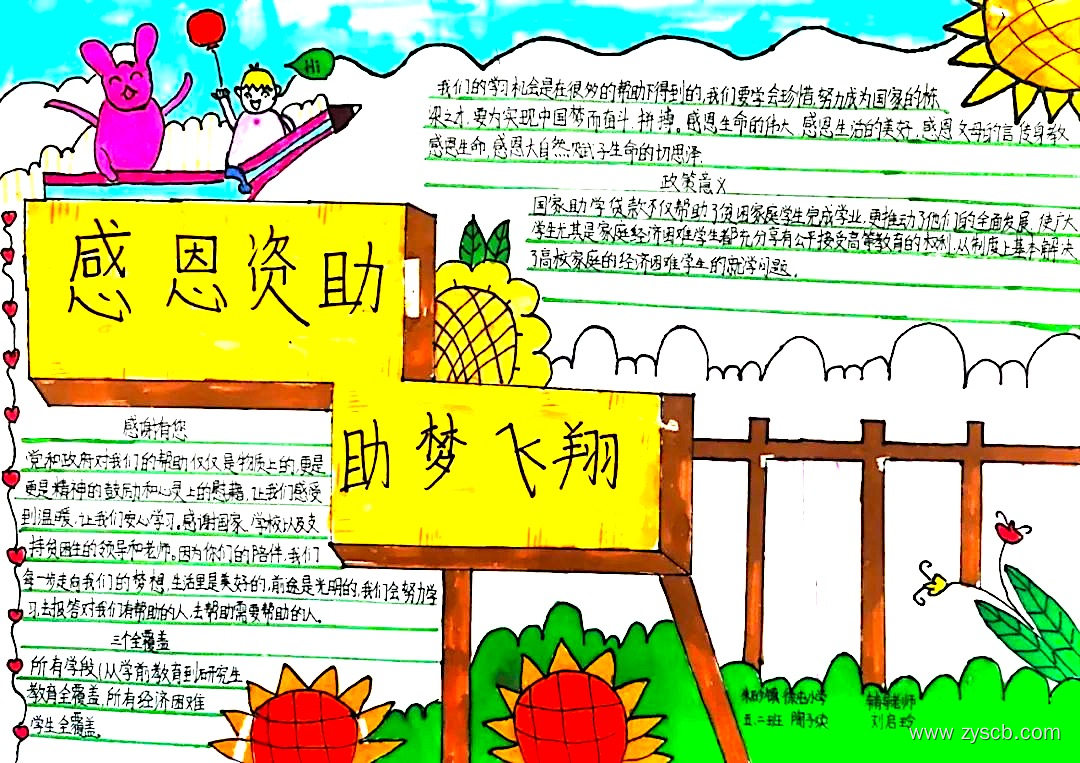 Hi
我们的学习机会是在很多的帮助下得到的,我们要学会珍惜,努力成为国家的栋
梁之才,要为实现中国梦而奋斗、拼搏。感恩生命的伟大,感恩生活的美好,感恩父母的言传身教
感恩生命,感恩大自然赋予生命的切思泽.
政策意义
国家助学贷款不仅帮助了贫困家庭学生完成学业,更推动了他们的全面发展,使广大
学生尤其是家庭经济困难学生都充分享有公平接受高等教育的权利,从制度上基本解决
了高校家庭的经济困难学生的就学问题.
感恩资助
助梦飞翔
感谢有您
党和政府对我们的帮助仅仅是物质上的,更是
更是精神的鼓励和心灵上的慰藉,让我们感受
到温暖,让我们安心学习。感谢国家、学校以及支
持贫困生的领导和老师。因为你们的陪伴,我们
每一步走向我们的梦想,生活里是美好的,前途是光明的,我们会努力学
习,去报答对我们有帮助的人,去帮助需要帮助的人。
三个全覆盖
所有学段(从学前教育到研究生
教育全覆盖,所有经济困难
学生全覆盖。
辅导老师
五.二班
刘启玲
www.zyscb.com